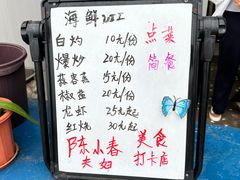 海鲜加工
白灼 10元/份
爆炒 20元/份
蒜蓉蒸 15元/份
椒盐 20元/份
龙虾 25元起
红烧 30元起
点菜
简餐
陈小春
夫妇
美食
打卡店